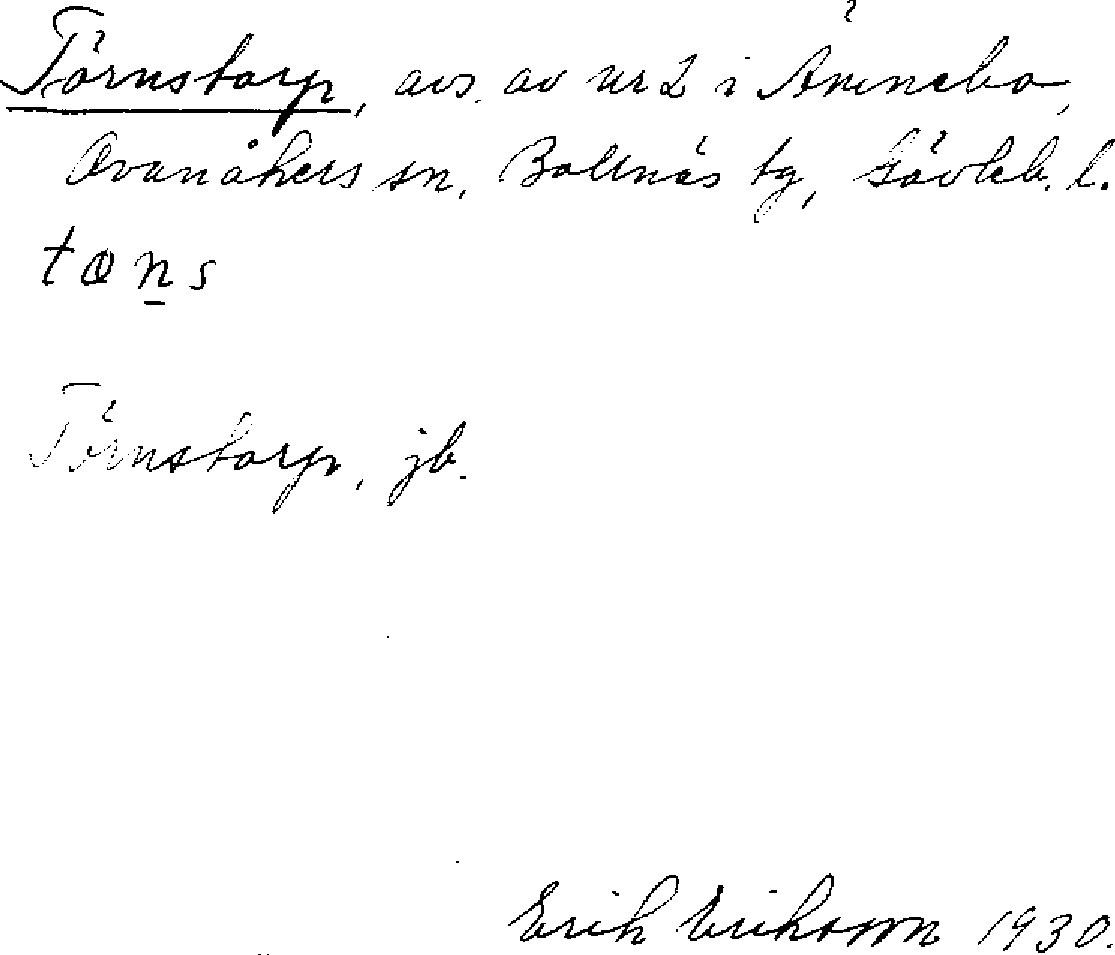 Törnstorp, avs. av nr 2 i Ämnebo,
Ovanåkers sn, Bollnäs tg, Gävleb. l.
tøn̲s
Törnstorp, jb.
Erik Eriksson 1930.